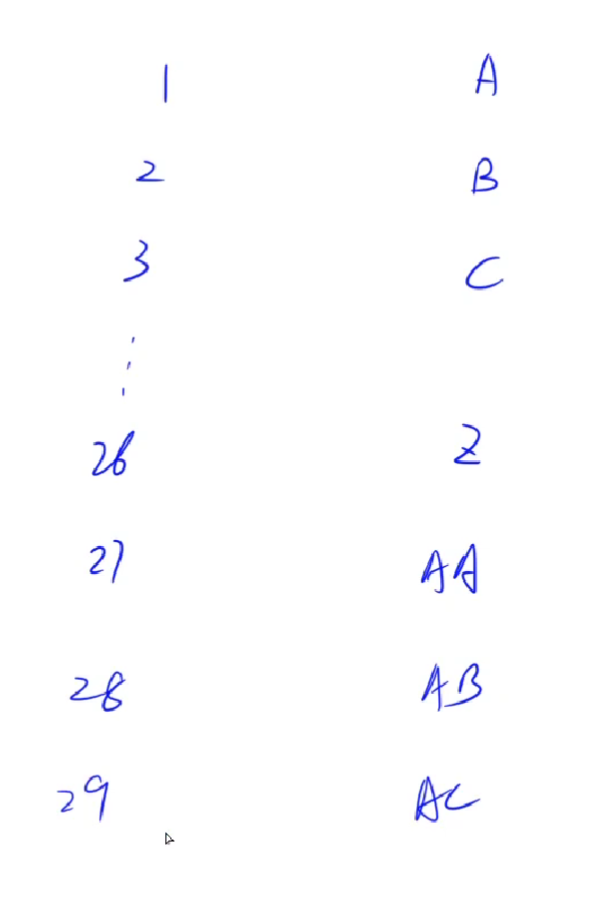 1 A
2 B
3 C
⋮
26 Z
27 AA
28 AB
29 AC